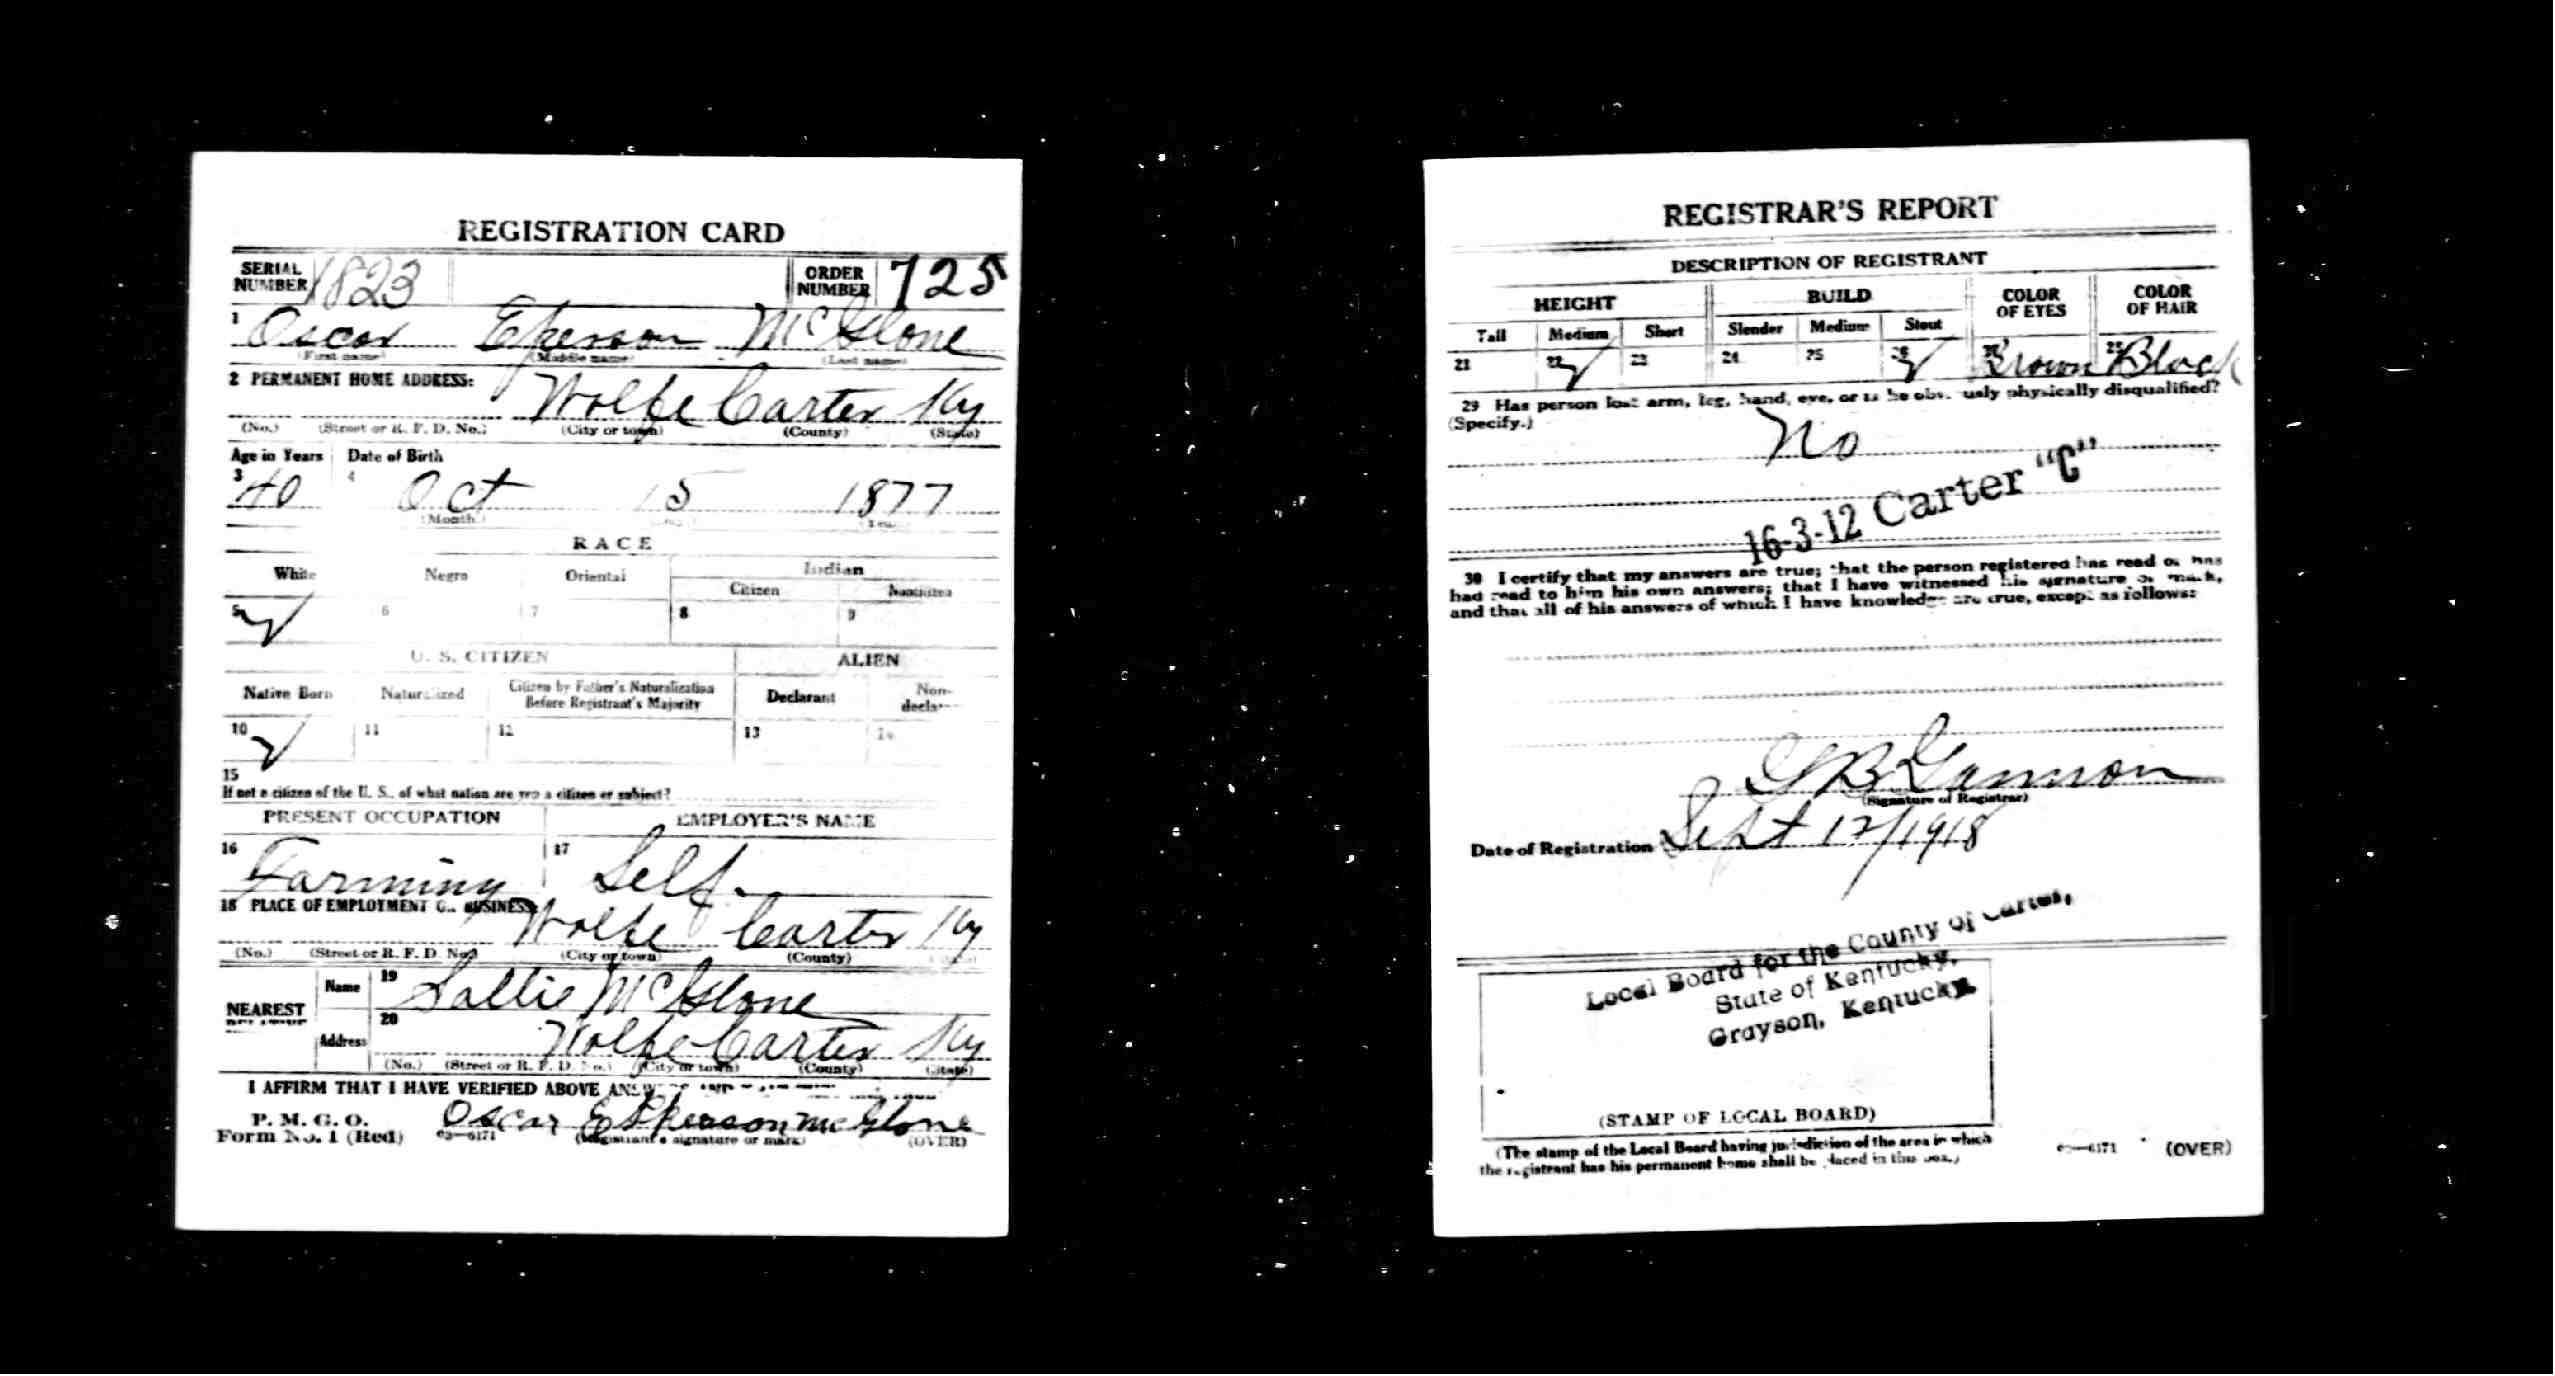 REGISTRATION CARD
SERIAL NUMBER 1823 ORDER NUMBER 725
1 Oscar Eperson McGlone
(First name) (Middle name) (Last name)
2 PERMANENT HOME ADDRESS:
Wolfe Carter Ky
(No.) (Street or R. F. D. No.) (City or town) (County) (State)
Age in Years Date of Birth
3 40 4 Oct 15 1877
(Month.)
RACE
White Negro Oriental Indian
Citizen Noncitizen
5 6 7 8 9
U. S. CITIZEN ALIEN
Native Born Naturalized Citizen by Father's Naturalization Before Registrant's Majority Declarant Non-
10 11 12 13 14
15
If not a citizen of the U. S., of what nation are you a citizen or subject?
PRESENT OCCUPATION EMPLOYER'S NAME
16 Farming 17 Self
18 PLACE OF EMPLOYMENT OR BUSINESS:
Wolfe Carter Ky
(No.) (Street or R. F. D. No.) (City or town) (County)
NEAREST Name 19 Sallie McGlone
Address 20 Wolfe Carter Ky
(No.) (Street or R. F. D. No.) (City or town) (County) (State)
I AFFIRM THAT I HAVE VERIFIED ABOVE
P. M. G. O.
Form No. 1 (Red) 03—6171 Oscar Epperson McGlone
(Registrant's signature or mark) (OVER)
REGISTRAR'S REPORT
DESCRIPTION OF REGISTRANT
HEIGHT BUILD COLOR OF EYES COLOR OF HAIR
Tall Medium Short Slender Medium Stout
21 22 23 24 25 26 27 Brown 28 Black
29 Has person lost arm, leg, hand, eye, or is he obviously physically disqualified?
(Specify.)
No
16-3-12 Carter "C"
30 I certify that my answers are true; that the person registered has read or has
had read to him his own answers; that I have witnessed his signature or mark,
and that all of his answers of which I have knowledge are true, except as follows:
G B Gannon
(Signature of Registrar)
Date of Registration Sept 12/1918
Local Board for the County of Carter,
State of Kentucky,
Grayson, Kentucky.
(STAMP OF LOCAL BOARD)
(The stamp of the Local Board having jurisdiction of the area in which
the registrant has his permanent home shall be placed in this box.)
03—6171 (OVER)